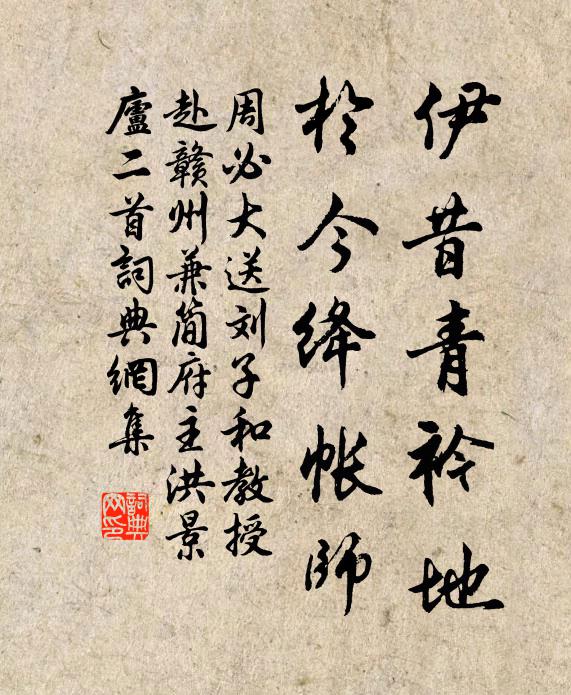 伊昔青衿地
於今绛帐師
周必大送刘子和教授
赴赣州兼简府主洪景
廬二首詞典網集
詞典
网印